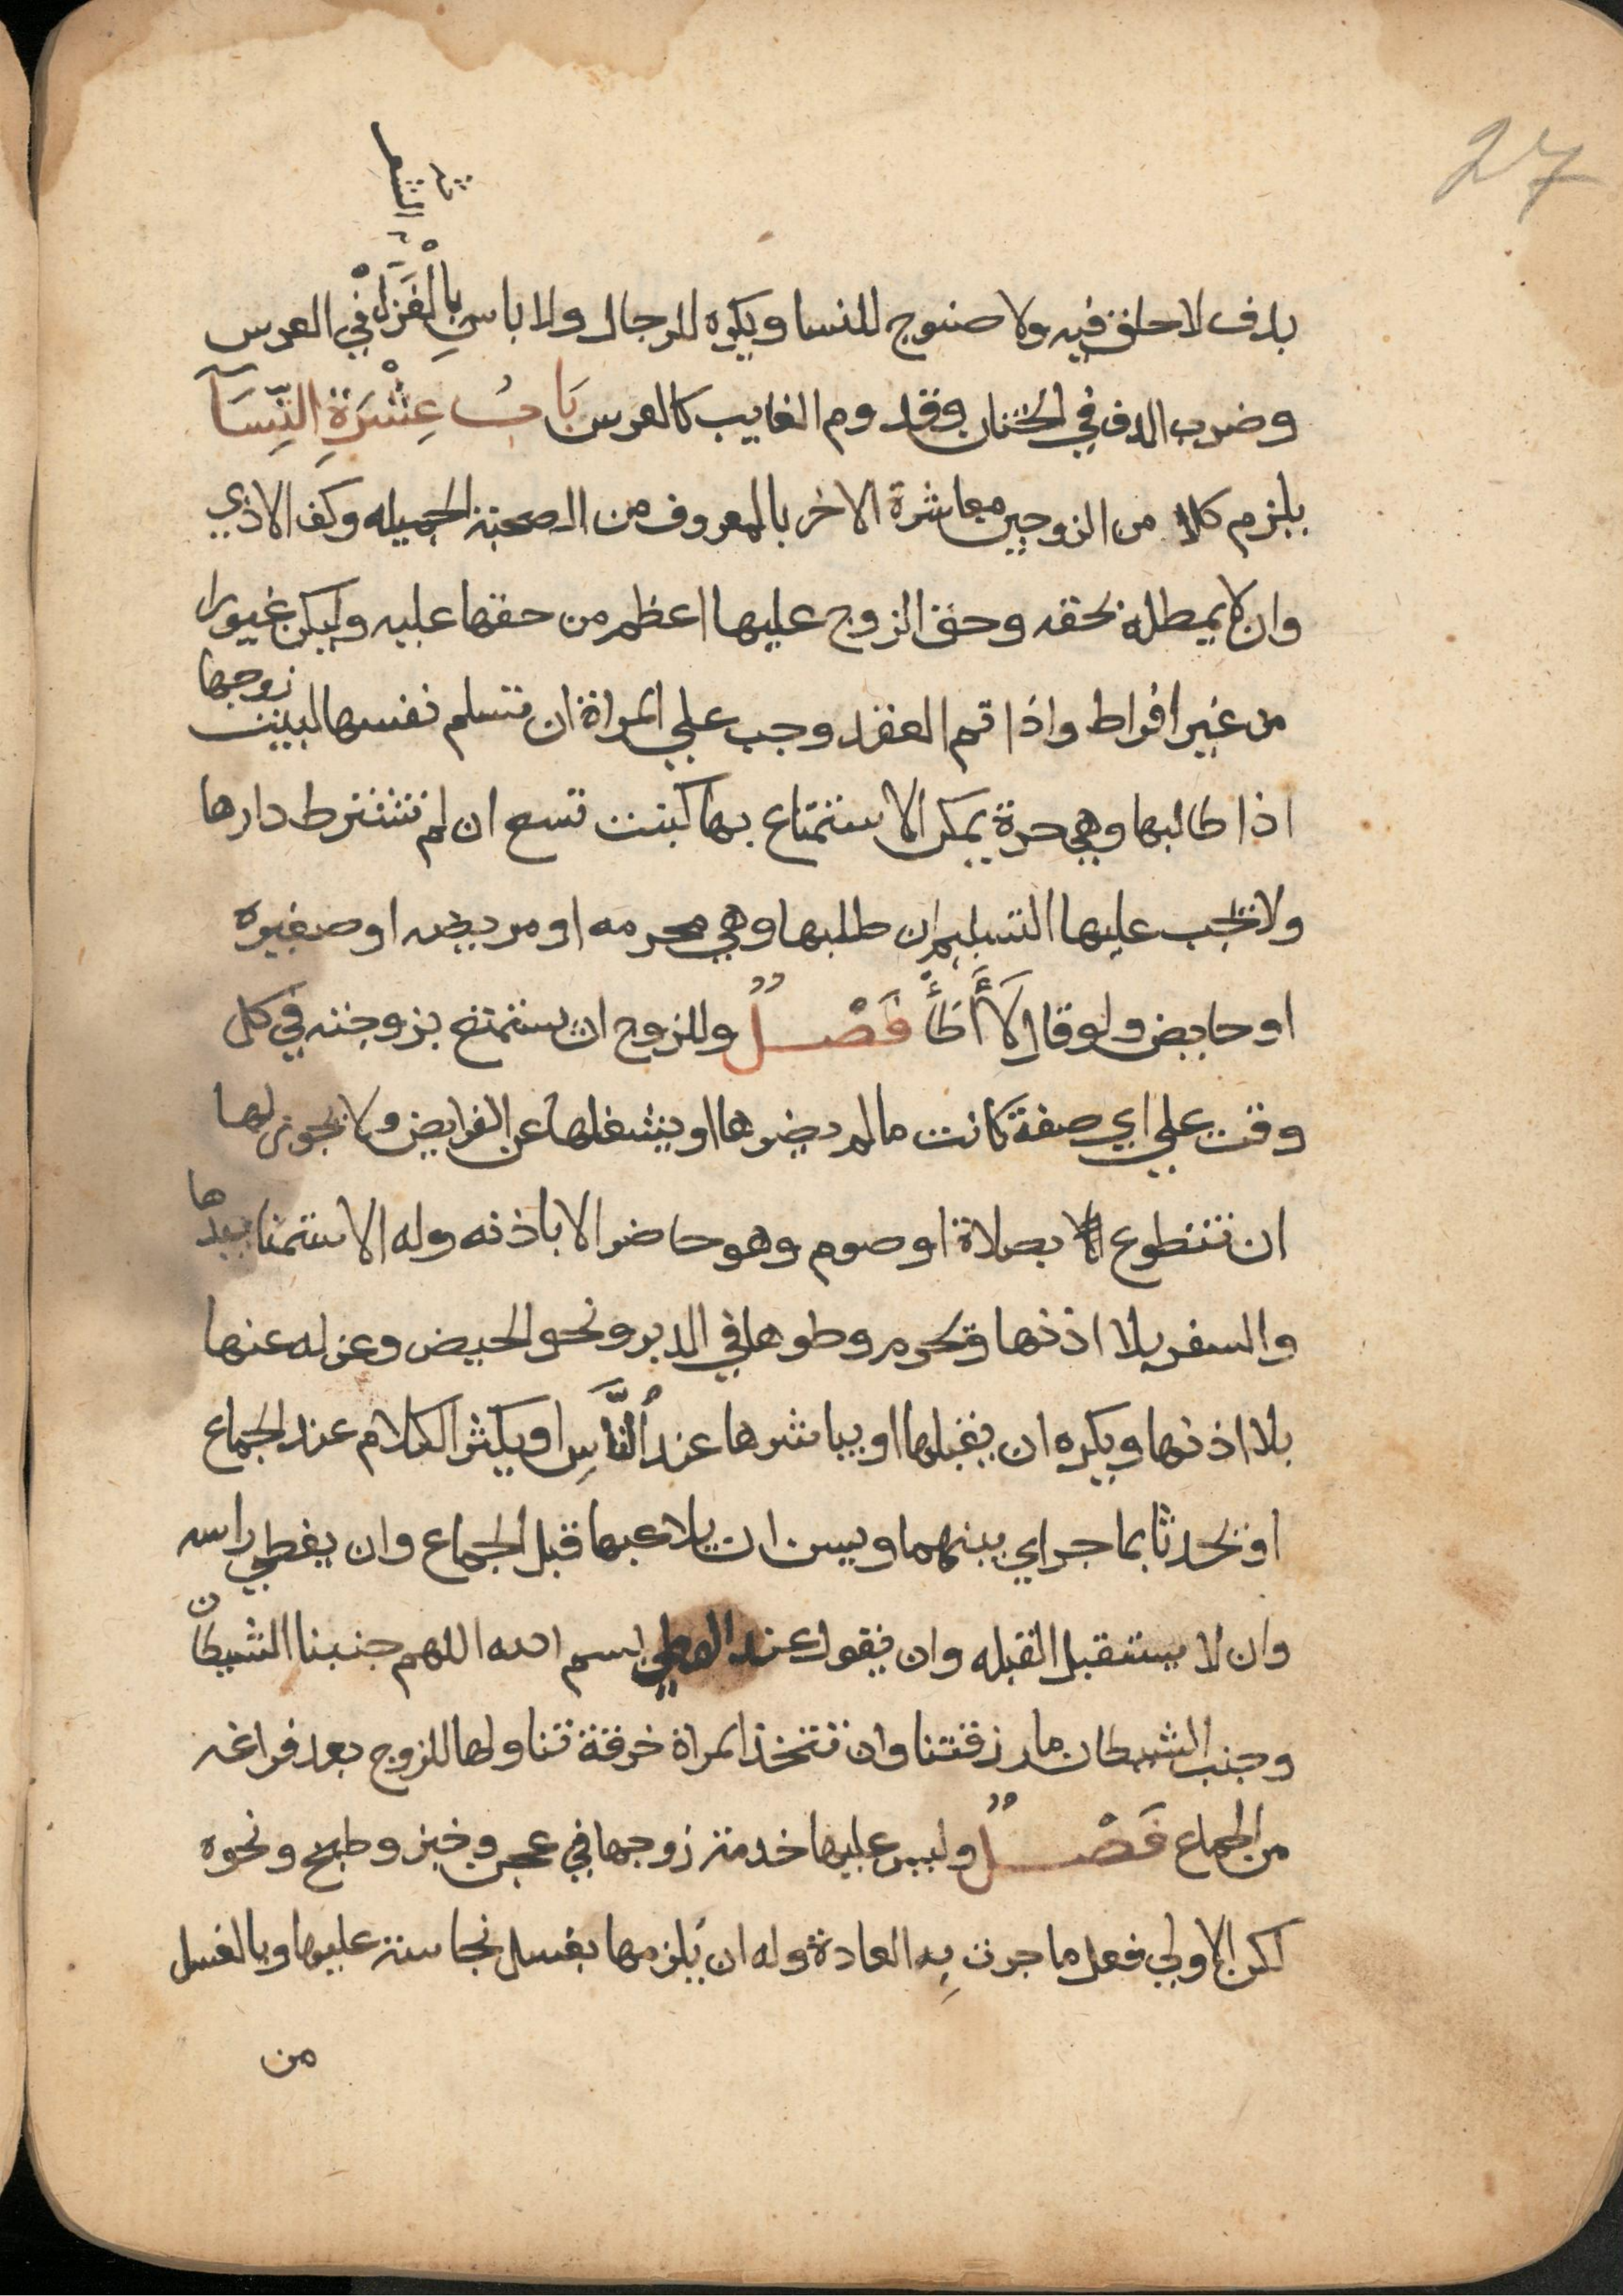 27
الشعر
بدف لا حلق فيه ولا صنوج للنسا ويكره للرجال ولا باس بِالْغَزَلْ في العرس
وضرب الدف في الختان وقدوم الغايب كالعرس بَابُ عِشْرَةِ النِّسَآ
يلزم كلا من الزوجين معاشرة الاخر بالمعروف من الصحبة الجميله وكف الاذي
وان لا يمطله بحقه وحق الزوج عليها اعظم من حقها عليه وليكن غيورا
من غير افراط واذا تم العقد وجب علي المراة ان تسلم نفسها لبيت زوجها
اذا طالبها وهي حرة يمكن الاستمتاع بها كبنت تسع ان لم تشترط دارها
ولا يجب عليها التسليم ان طلبها وهي محرمه او مريضه او صغيره
او حايض ولو قال لَا أَطَأُ فَصْلٌ وللزوج ان يستمتع بزوجته في كل
وقت علي اي صفة كانت مالم يضرها او يشغلها عن الفرايض ولا يجوز لها
ان تتطوع بصلاة او صوم وهو حاضر الا باذنه وله الاستمنا بيدها
والسفر بلا اذنها ويحرم وطوها في الدبر ونحو الحيض وعزله عنها
بلا اذنها ويكره ان يقبلها او يباشرها عند النَّاسِ او يكثر الكلام عند الجماع
او يحدثا بما جراي بينهما ويسن ان يلاعبها قبل الجماع وان يغطي راسه
وان لا يستقبل القبله وان يقول عند الوطي بسم الله اللهم جنبنا الشيطان
وجنب الشيطان ما رزقتنا وان تتخذ المراة خرقة تناولها للزوج بعد فراغه
من الجماع فَصْلٌ وليس عليها خدمة زوجها في عجن وخبز وطبخ ونحوه
لكن الاولي فعل ما جرت بِه العادة وله ان يُلزمها بغسل نجاسة عليها وبالغسل
من